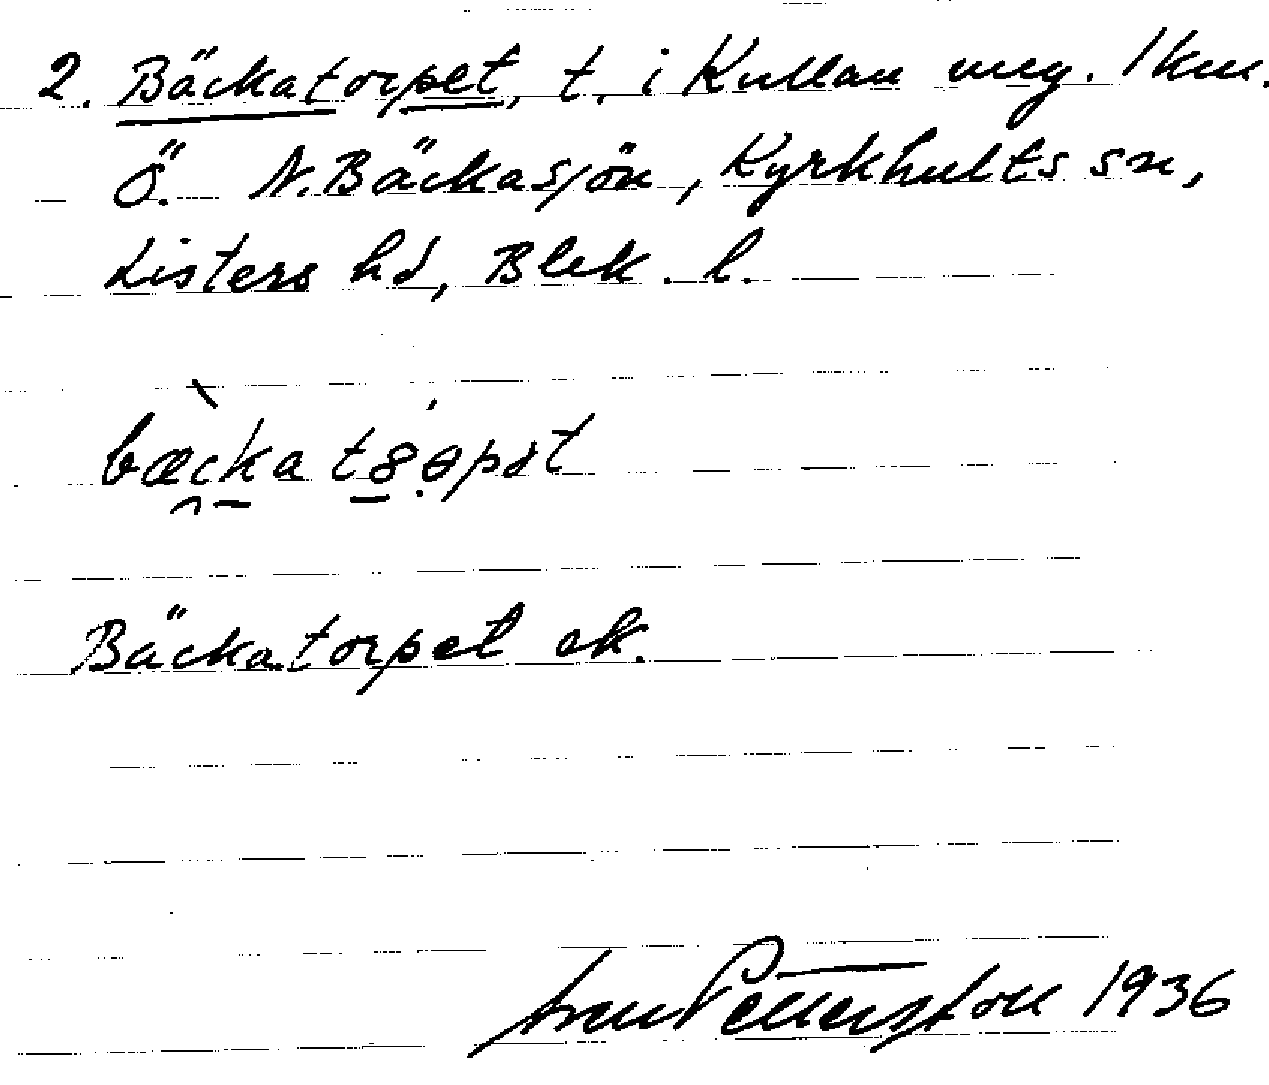 2. Bäckatorpet, t. i Kullan ung. 1 km.
Ö. N. Bäckasjön, Kyrkhults sn,
Listers hd, Blek. l.
Bäckatorpet ek.
Pettersson 1936